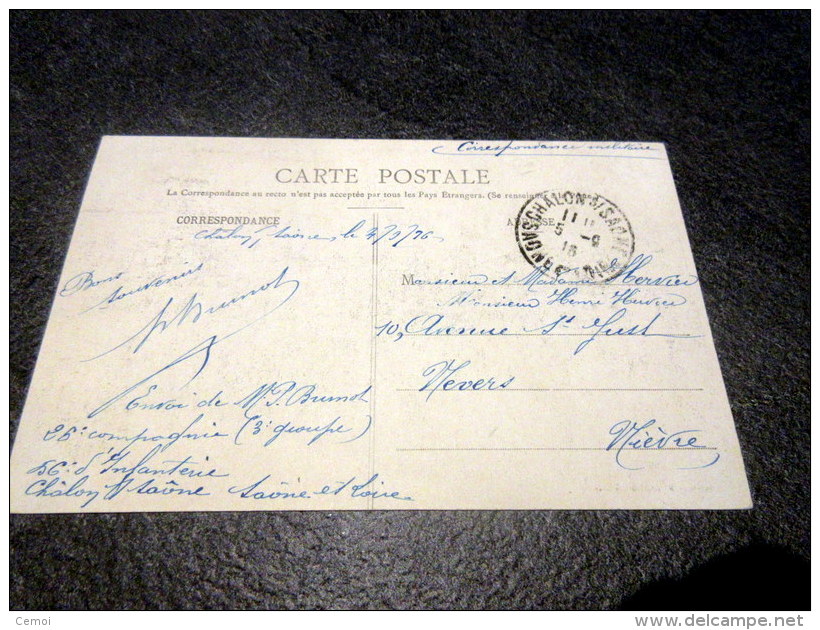 Correspondance militaire
CARTE POSTALE
La Correspondance au recto n'est pas acceptée par tous les Pays Étrangers. (Se renseigner
CORRESPONDANCE
Châlon s/ Saône, le 4/9/16
CHALON S/SAONE
11
5 - 9
16
Bons
souvenirs
P. Brunot
Monsieur et Madame Hervier
Monsieur Henri Hervier
10, Avenue St Just
Nevers
Nièvre
Envoi de M. P. Brunot
26e compagnie (3e groupe)
56e d'Infanterie
Châlon s/ Saône Saône et Loire
Cemoi
www.delcampe.net